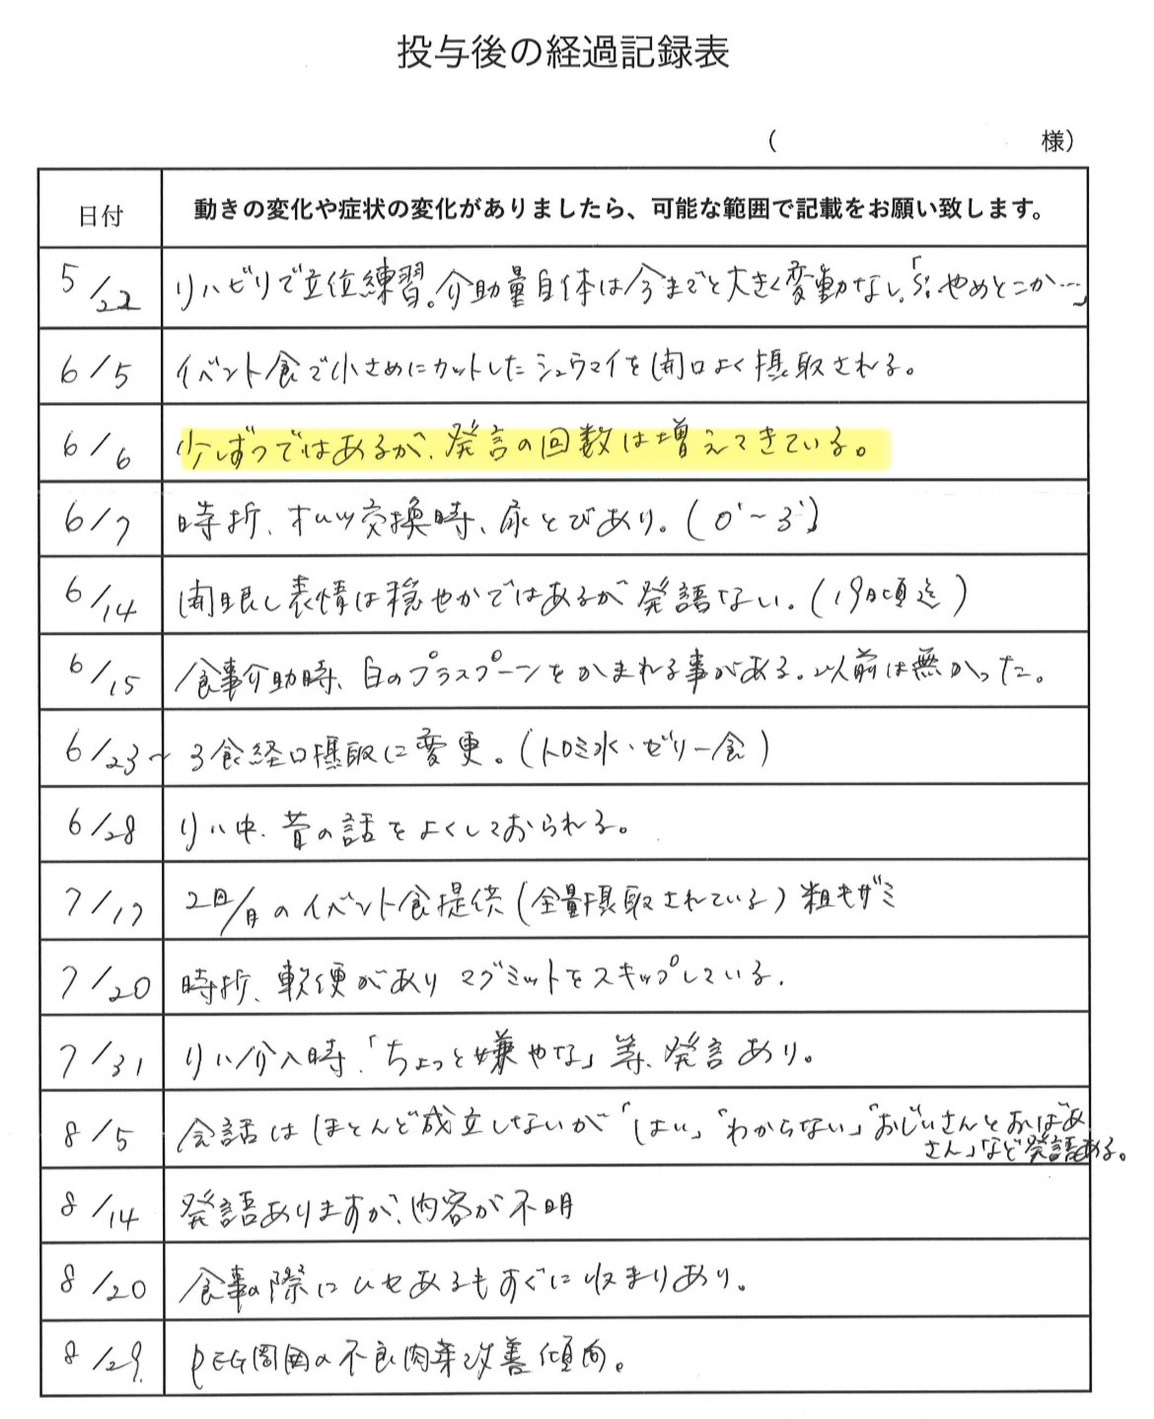 投与後の経過記録表
( 様)
日付 動きの変化や症状の変化がありましたら、可能な範囲で記載をお願い致します。
5/22 リハビリで立位練習。介助量自体は今までと大きく変動なし。「 やめとこか…」
6/5 イベント食で小さめにカットしたシュウマイを開口よく摂取される。
6/6 少しずつではあるが、発言の回数は増えてきている。
6/7 時折、オムツ交換時、尿とびあり。(0~3)
6/14 開眼し表情は穏やかではあるが発語ない。(19日頃迄)
6/15 食事介助時、白のプラスプーンをかまれる事がある。以前は無かった。
6/23~ 3食経口摂取に変更。(トロミ水・ゼリー食)
6/28 リハ中、昔の話をよくしておられる。
7/17 2回/月のイベント食提供(全量摂取されている)粗キザミ
7/20 時折、軟便がありマグミットをスキップしている。
7/31 リハ介入時、「ちょっと嫌やな」等、発言あり。
8/5 会話はほとんど成立しないが「はい」「わからない」「おじいさんとおばあ
さん」など発語ある。
8/14 発語ありますが、内容が不明
8/20 食事の際にムセあるもすぐに収まりあり。
8/29 PEG周囲の不良肉芽改善傾向。